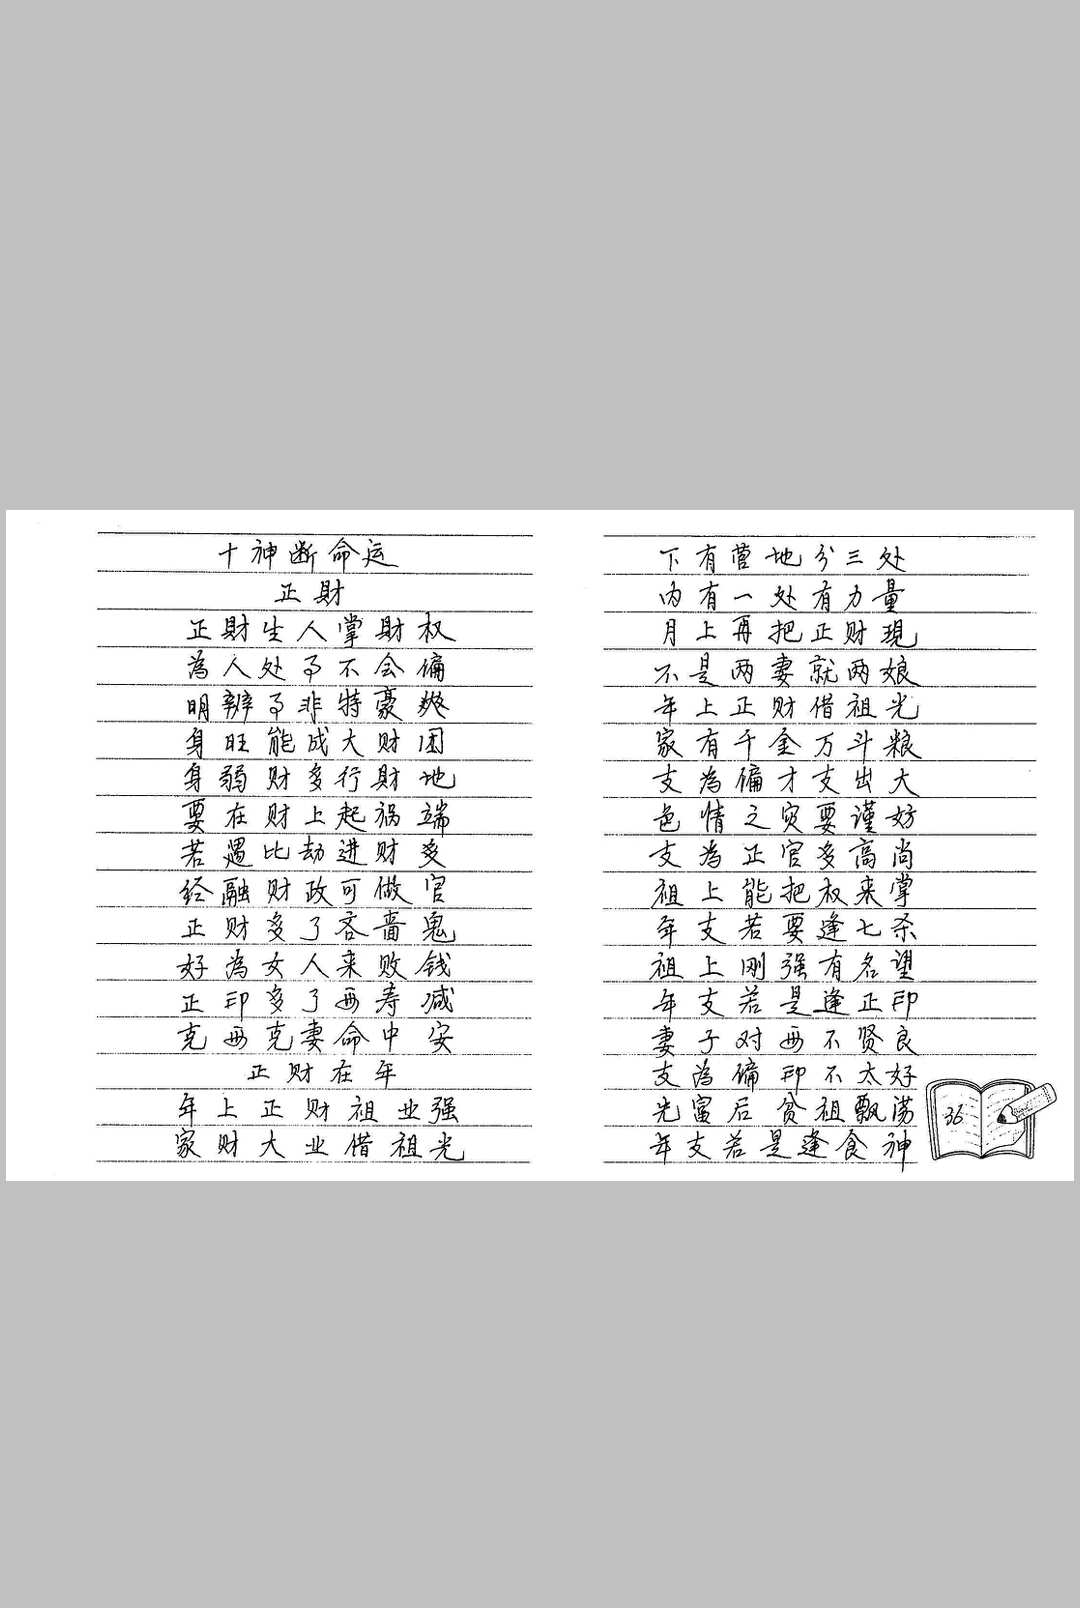 十神断命运
正財
正財生人掌財权
為人处事不会偏
明辨事非特豪爽
身旺能成大财团
身弱财多行財地
要在财上起祸端
若遇比劫进财多
经融财政可做官
正财多了吝啬鬼
好為女人来败钱
正印多了西寿减
克西克妻命中安
正财在年
年上正财祖业强
家财大业借祖光
下有营地分三处
内有一处有力量
月上再把正财現
不是两妻就两娘
年上正财借祖光
家有千金万斗粮
支為偏才支出大
色情之灾要谨好
支為正官多高尚
祖上能把权来掌
年支若要逢七杀
祖上刚强有名望
年支若是逢正印
妻子对西不贤良
支為偏印不太好
先富后贫祖飘荡
年支若是逢食神
36